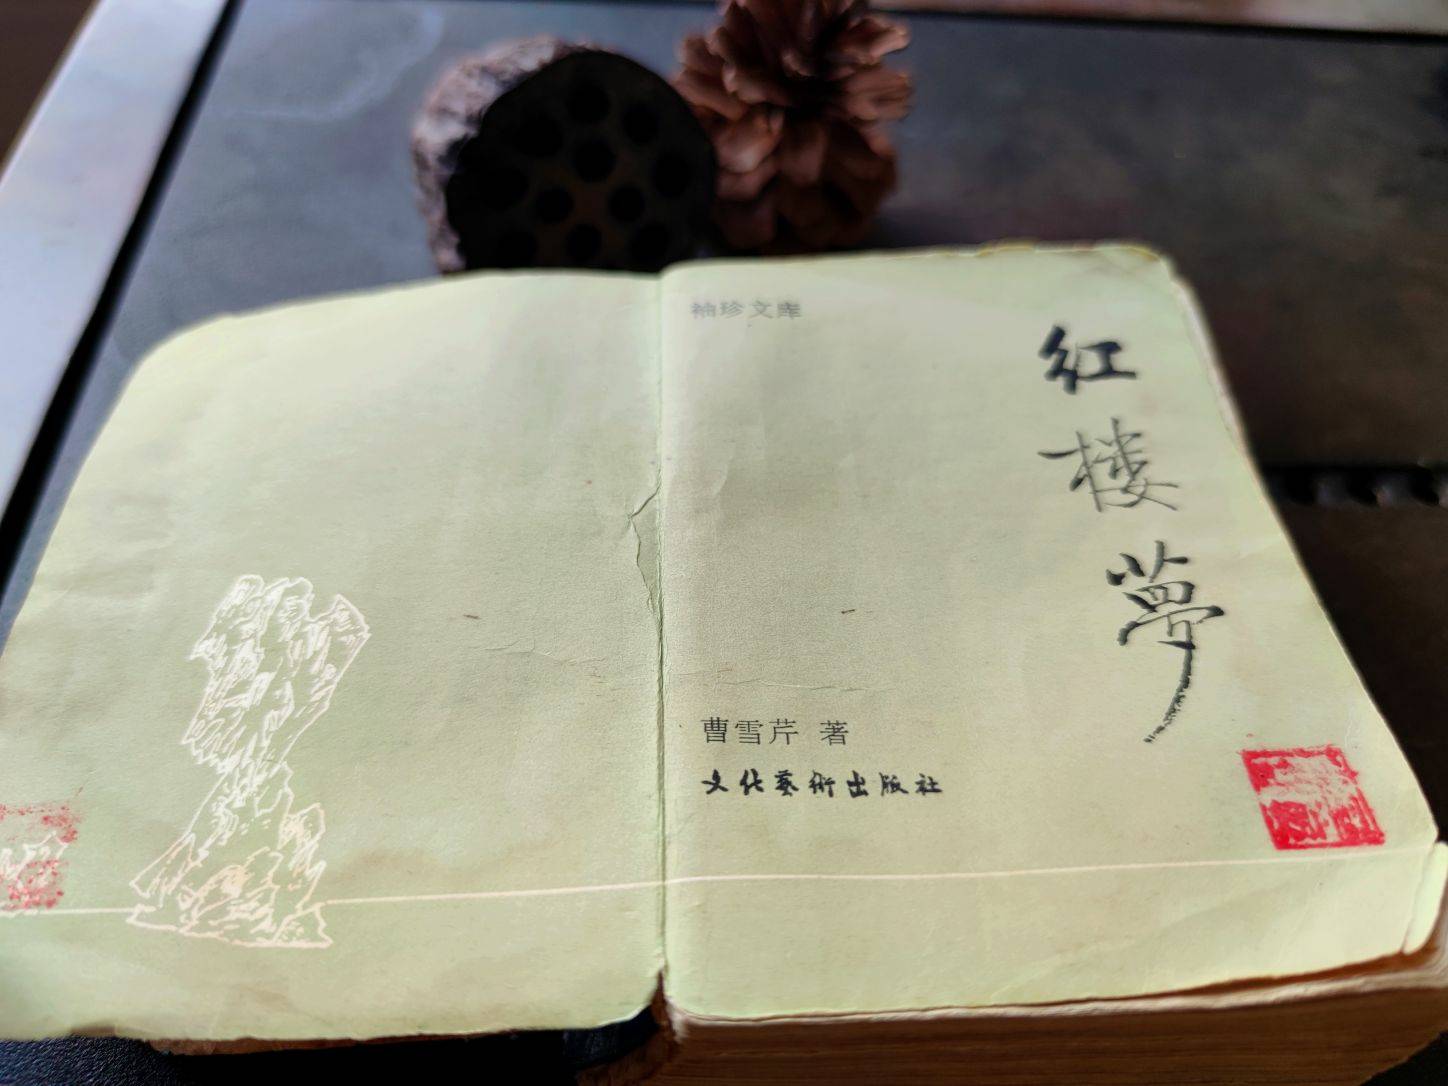 袖珍文库
红楼夢
曹雪芹 著
文化藝術出版社